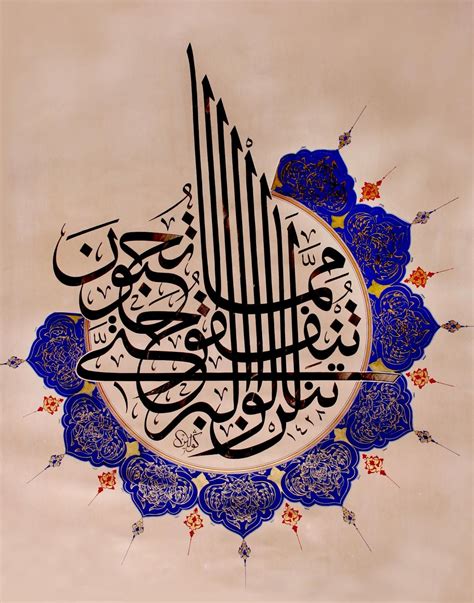 لن تنالوا البر حتى
تنفقوا
مما تحبون
١٤١٨